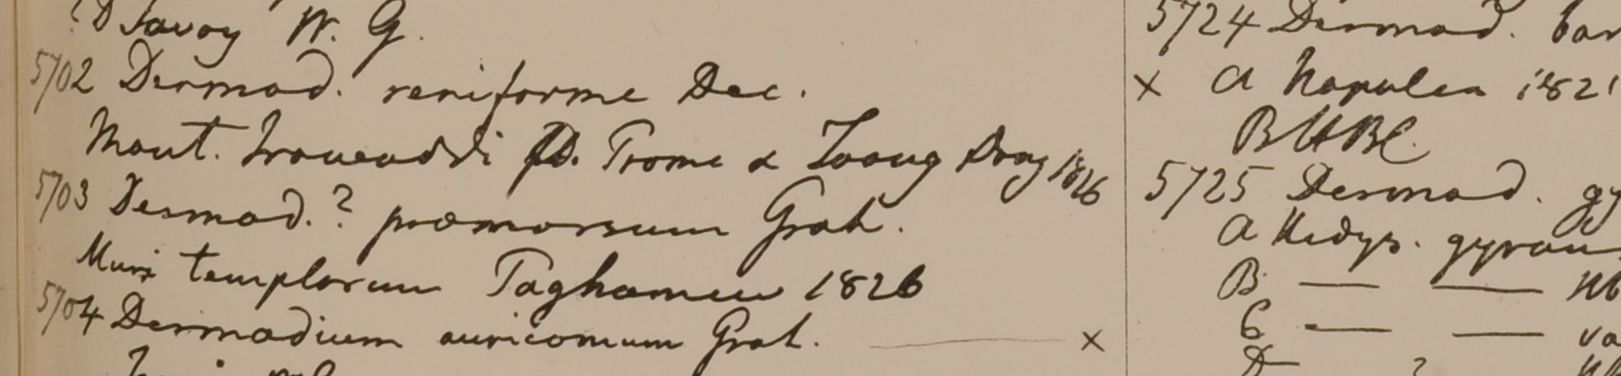 ? D Tavoy W. G.
5702 Desmod. reniforme Dec.
Mont. Irowaddi Prome & Toong Dong 1826
5703 Desmod.? præmorsum Grah.
Muri templorum Paghamew 1826
5704 Desmodium auricomum Grah. ——— ×
5724 Desmod.
× A Napulea 1821
B HBC.
5725 Desmod. gy
A Hedys. gyran
B — —
C — — va
D ?